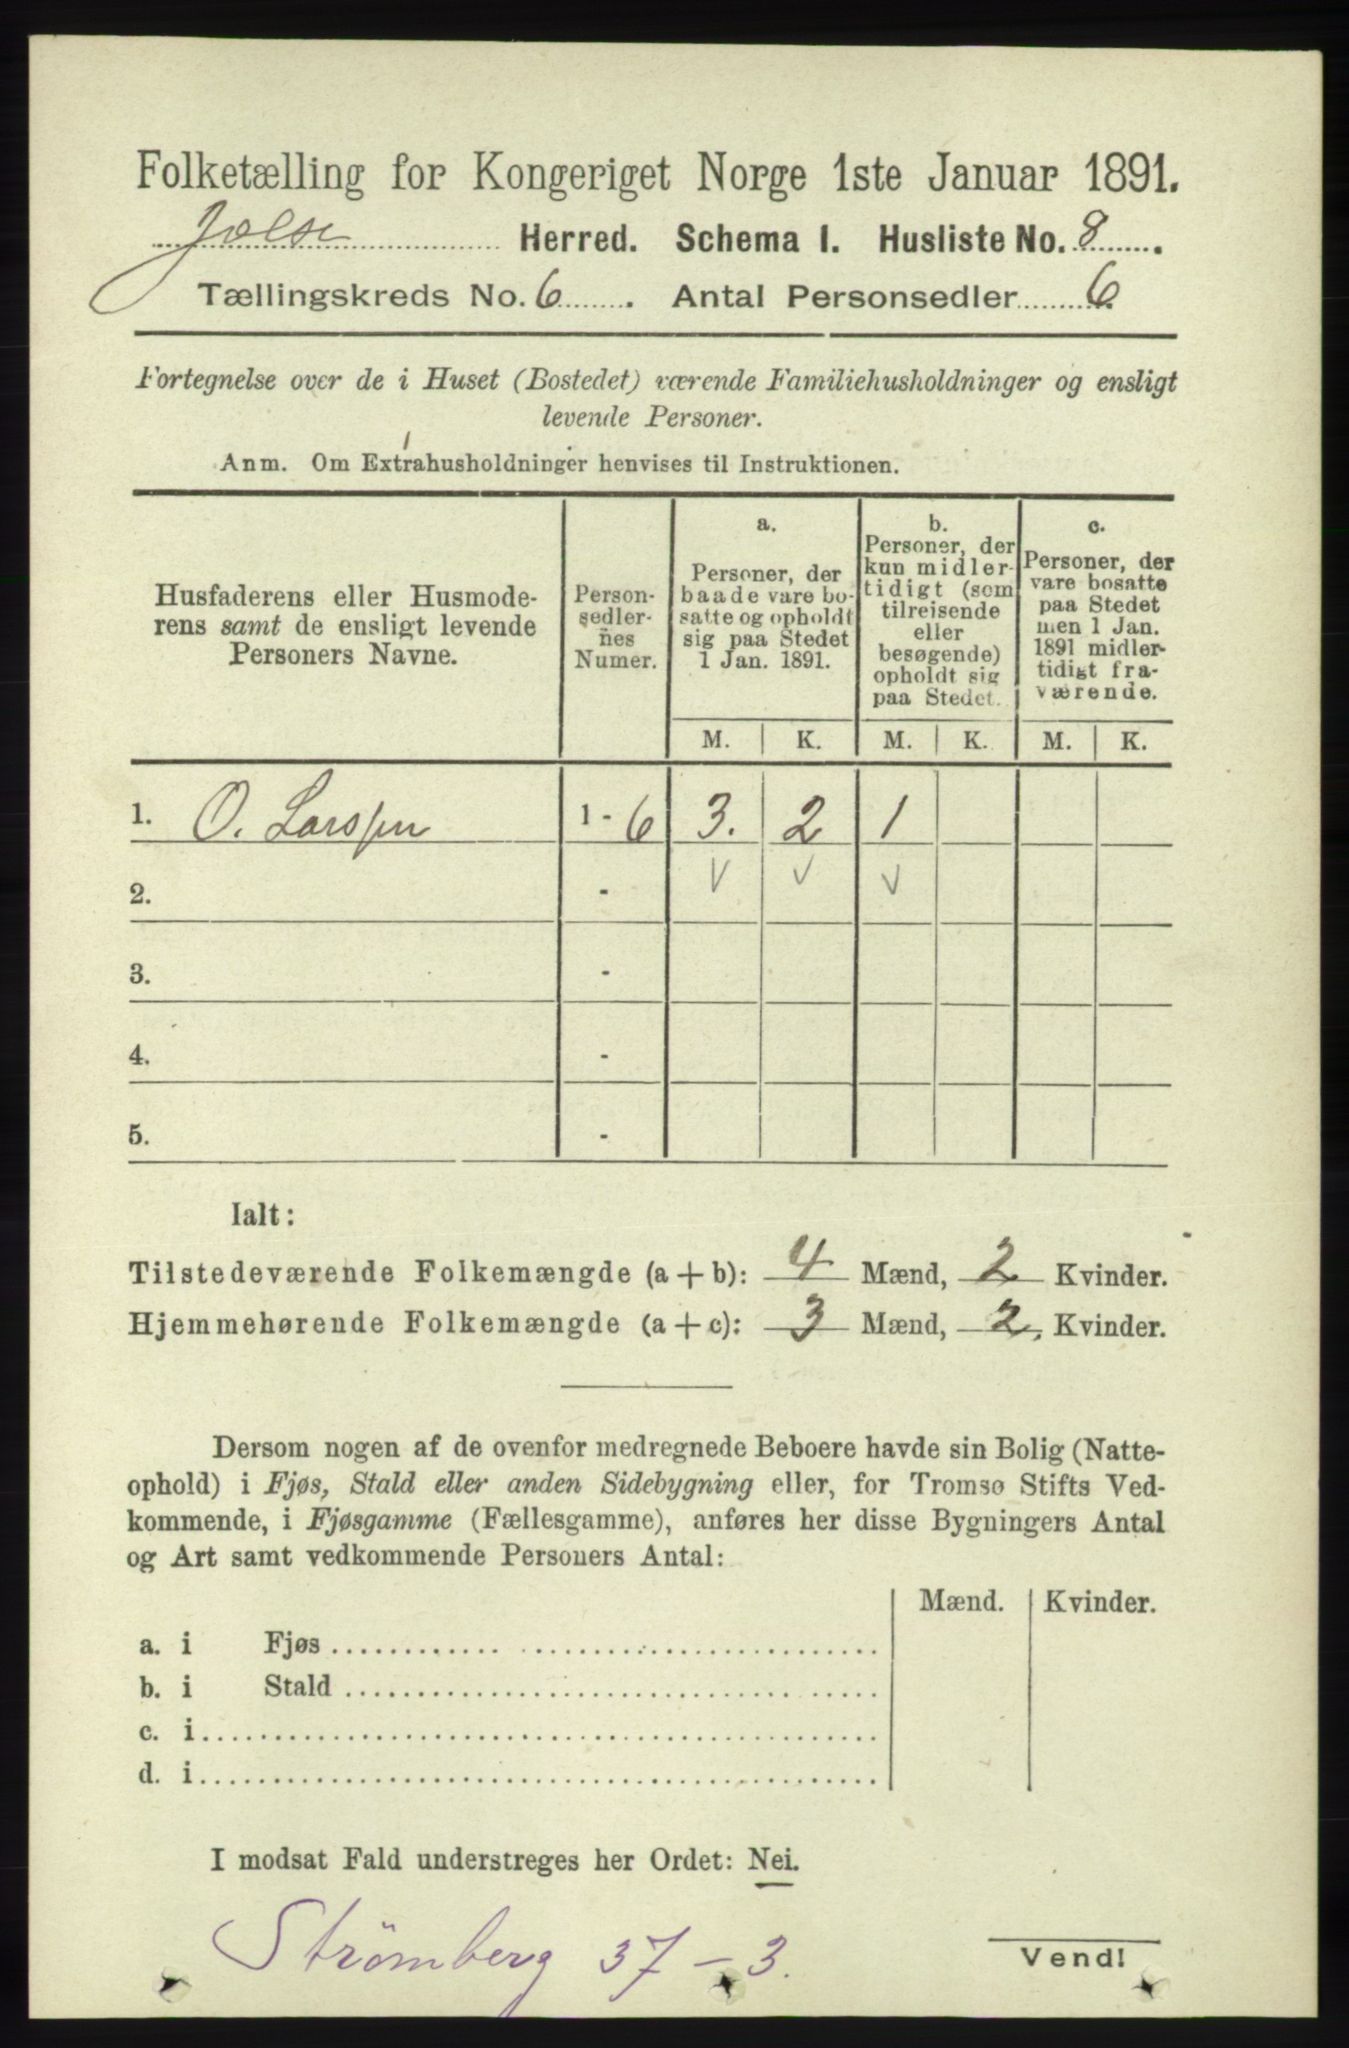 Folketælling for Kongeriget Norge 1ste Januar 1891.
Jølse Herred. Schema I. Husliste No. 8.
Tællingskreds No. 6. Antal Personsedler 6.
Fortegnelse over de i Huset (Bostedet) værende Familiehusholdninger og ensligt
levende Personer.
Anm. Om Extrahusholdninger henvises til Instruktionen.
Husfaderens eller Husmode-
rens samt de ensligt levende
Personers Navne.
Person-
sedler-
nes
Numer.
a.
Personer, der
baade vare bo-
satte og opholdt
sig paa Stedet
1 Jan. 1891.
b.
Personer, der
kun midler-
tidigt (som
tilreisende
eller
besøgende)
opholdt sig
paa Stedet.
c.
Personer, der
vare bosatte
paa Stedet
men 1 Jan.
1891 midler-
tidigt fra-
værende.
M. K. M. K. M. K.
1. O. Larssen 1 - 6 3. 2 1
2. - V V V
3. -
4. -
5. -
Ialt:
Tilstedeværende Folkemængde (a + b): 4 Mænd, 2 Kvinder.
Hjemmehørende Folkemængde (a + c): 3 Mænd, 2. Kvinder.
Dersom nogen af de ovenfor medregnede Beboere havde sin Bolig (Natte-
ophold) i Fjøs, Stald eller anden Sidebygning eller, for Tromsø Stifts Ved-
kommende, i Fjøsgamme (Fællesgamme), anføres her disse Bygningers Antal
og Art samt vedkommende Personers Antal:
Mænd. Kvinder.
a. i Fjøs
b. i Stald
c. i
d. i
I modsat Fald understreges her Ordet: Nei.
Strømberg 37 - 3.
Vend!